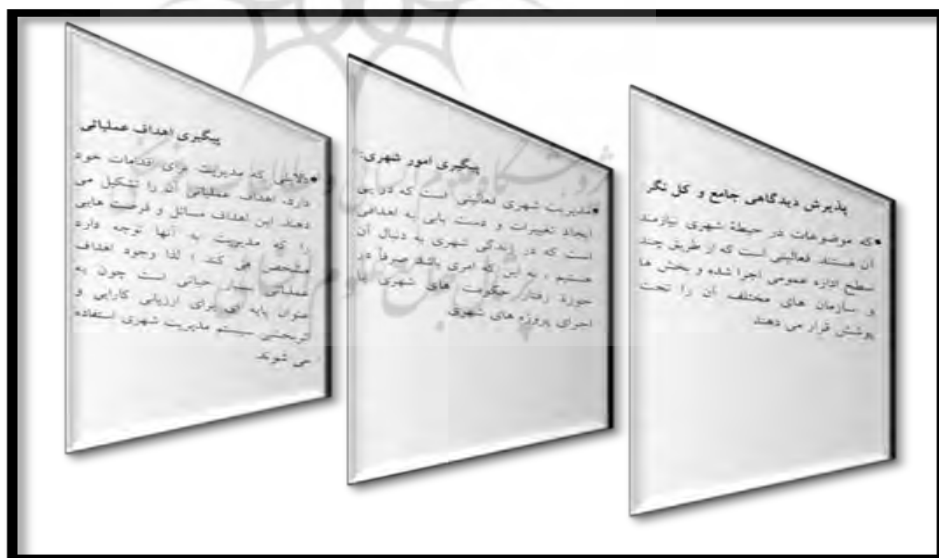 پذیرش دیدگاهی جامع و کل نگر
•که موضوعات در حیطۀ شهری نیازمند
آن هستند. فعالیتی است که از طریق چند
سطح اداره عمومی اجرا شده و بخش ها
و سازمان های مختلف آن را تحت
پوشش قرار می دهند
پیگیری امور شهری:
•مدیریت شهری فعالیتی است که در پی
ایجاد تغییرات و دست یابی به اهدافی
است که در زندگی شهری به دنبال آن
هستیم ، نه این که امری باشد صرفاً در
حوزه رفتار حکومت های شهری یا
اجرای پروژه های شهری
پیگیری اهداف عملیاتی
•دلایلی که مدیریت برای اقدامات خود
دارد، اهداف عملیاتی آن را تشکیل می
دهند. این اهداف مسائل و فرصت هایی
را که مدیریت به آنها توجه دارد
مشخص می کند ؛ لذا وجود اهداف
عملیاتی بسیار حیاتی است چون به
عنوان پایه ای برای ارزیابی کارایی و
اثربخشی سیستم مدیریت شهری استفاده
می شوند